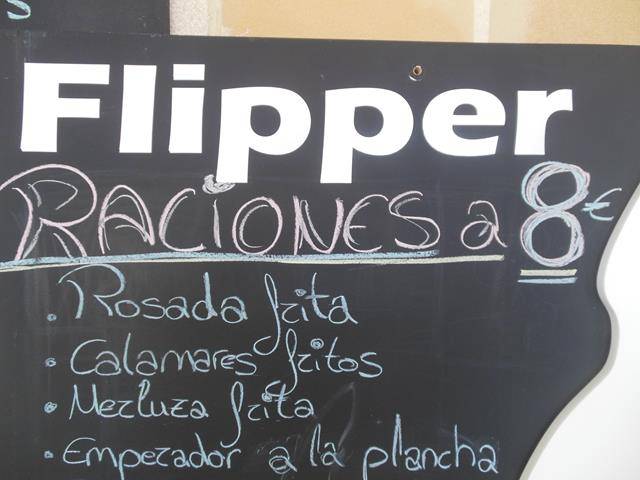 Flipper
RACIONES a 8€
. Rosada frita
. Calamares fritos
. Merluza frita
. Emperador a la plancha